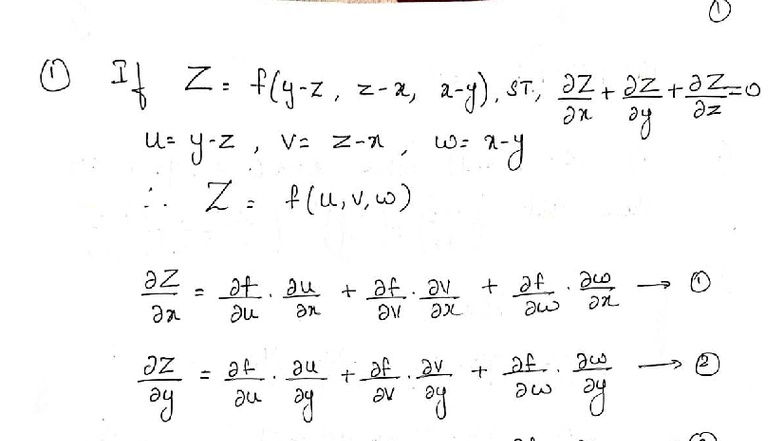 ①
① If Z = f(y-z, z-x, x-y), ST, ∂Z/∂x + ∂Z/∂y + ∂Z/∂z = 0
u = y-z, v = z-x, w = x-y
∴ Z = f(u, v, w)
∂Z/∂x = ∂f/∂u · ∂u/∂x + ∂f/∂v · ∂v/∂x + ∂f/∂w · ∂w/∂x → ①
∂Z/∂y = ∂f/∂u · ∂u/∂y + ∂f/∂v · ∂v/∂y + ∂f/∂w · ∂w/∂y → ②